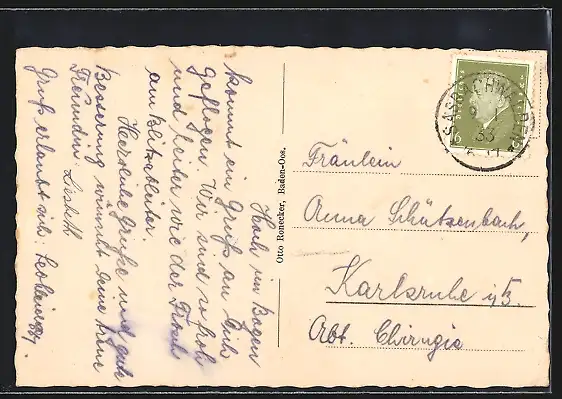 Hoch im Bogen
kommt ein Gruß an Dich
geflogen. Wir sind so froh
und heiter wie der Frosch
am Blitzableiter.
Herzliche Grüße und gute
Besserung wünscht Deine
Freundin Lisbeth
Gruß erlaubt sich:
Otto Ronecker, Baden-Oos.
SASBACHWALDEN
33
6
Fräulein
Anna Schützenbach,
Karlsruhe i/B.
Abt. Chirugie